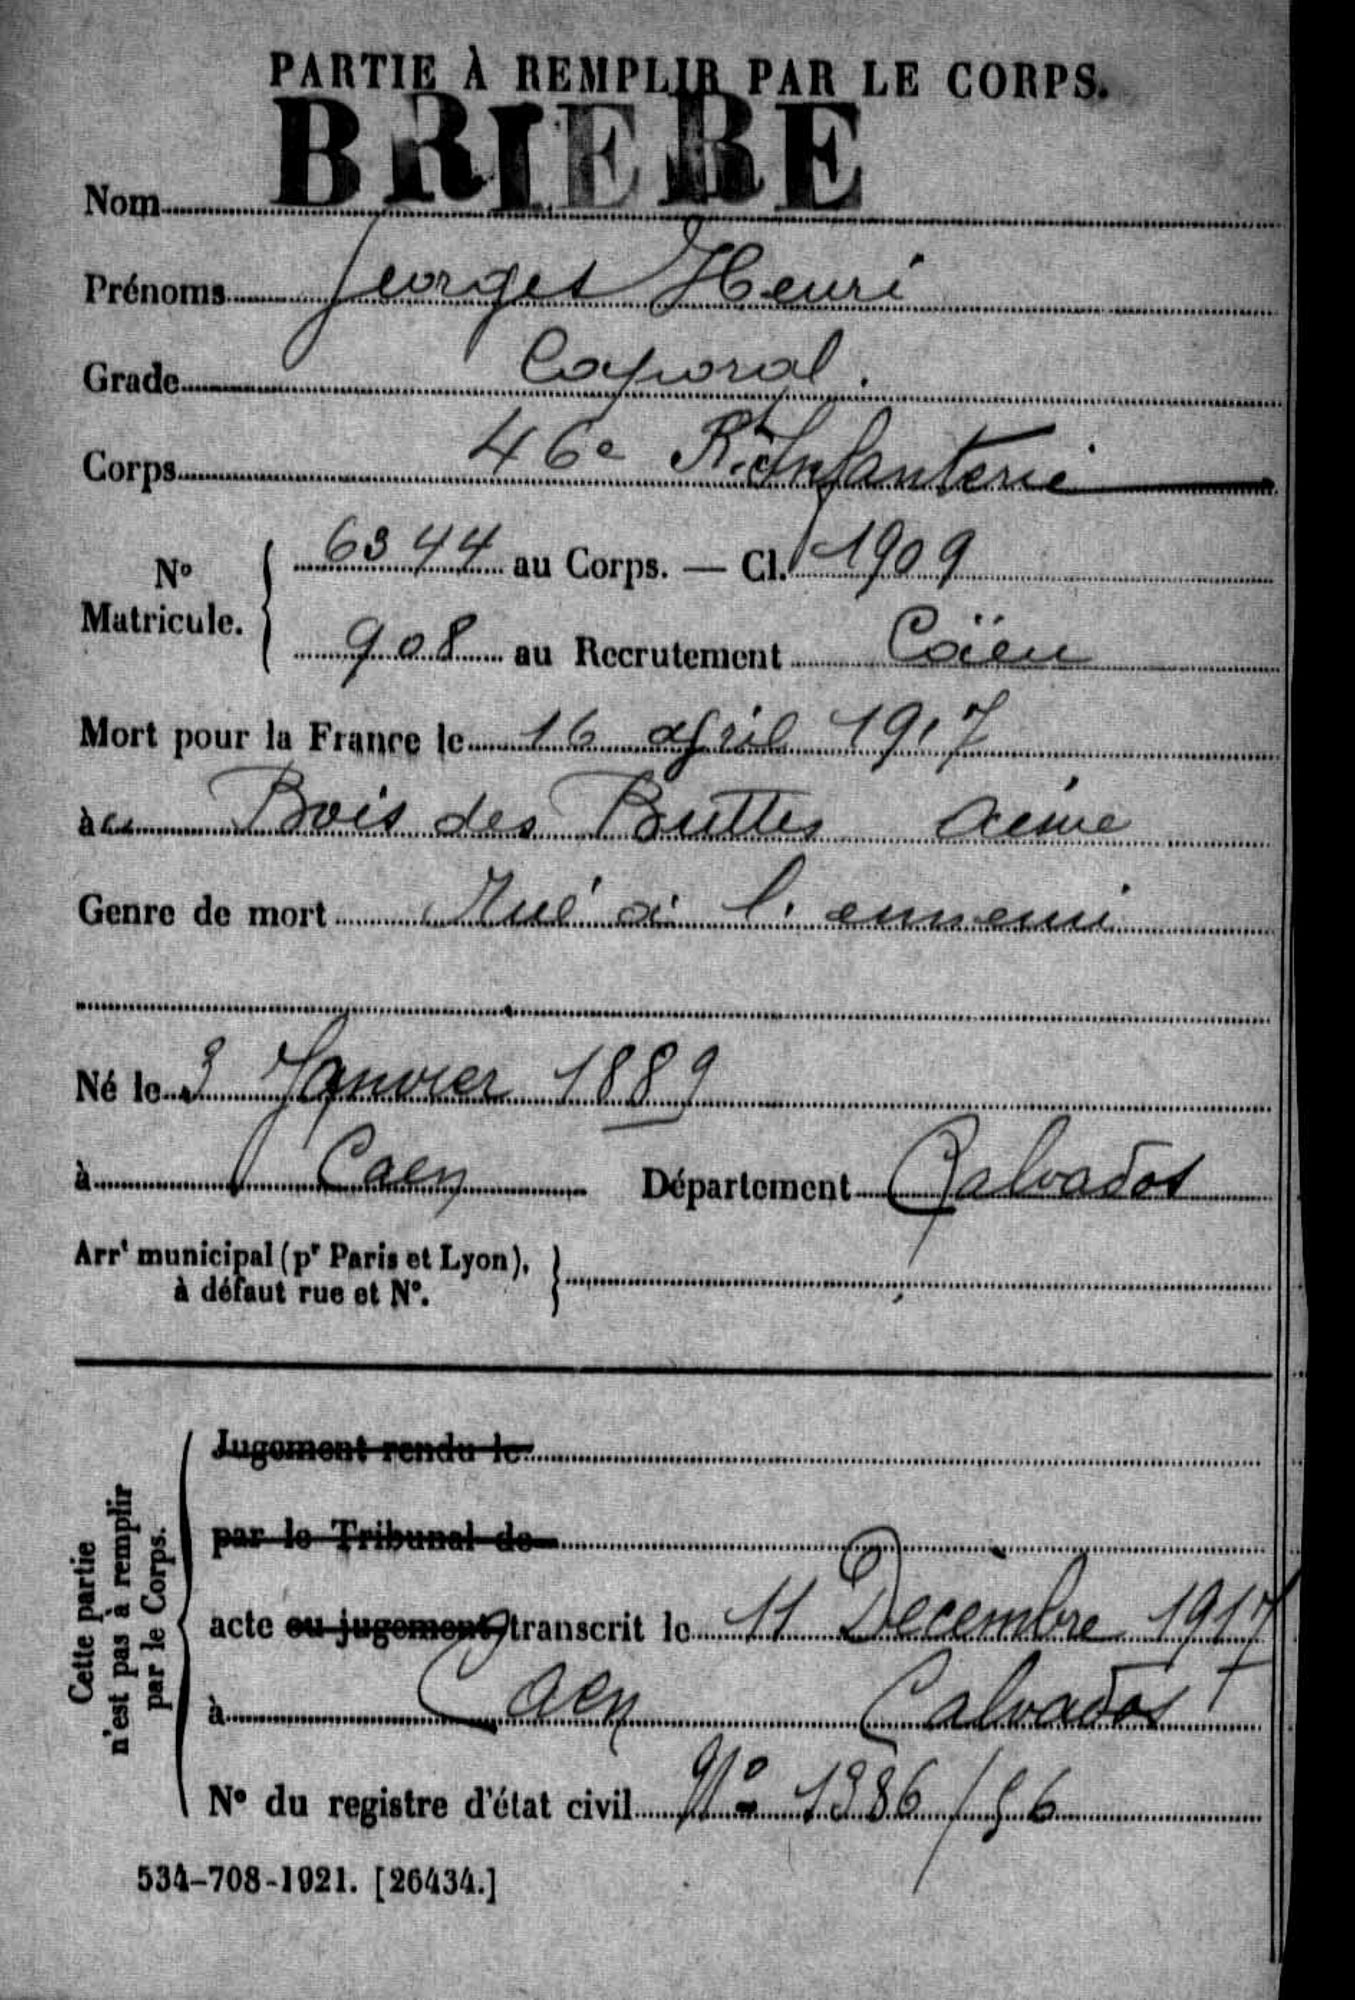 PARTIE À REMPLIR PAR LE CORPS.
Nom BRIERE
Prénoms Georges Henri
Grade Caporal.
Corps 46e R. d'Infanterie
No Matricule. { 6344 au Corps. — Cl. 1909
908 au Recrutement Caën
Mort pour la France le 16 avril 1917
à au Bois des Buttes Aisne
Genre de mort Tué à l'ennemi
Né le 3 Janvier 1889
à Caen Département Calvados
Arrt municipal (pr Paris et Lyon), à défaut rue et No. }
Cette partie n'est pas à remplir par le Corps.
Jugement rendu le
par le Tribunal de
acte ou jugement transcrit le 11 Décembre 1917
à Caen Calvados
No du registre d'état civil No 1386/56
534-708-1921. [26434.]